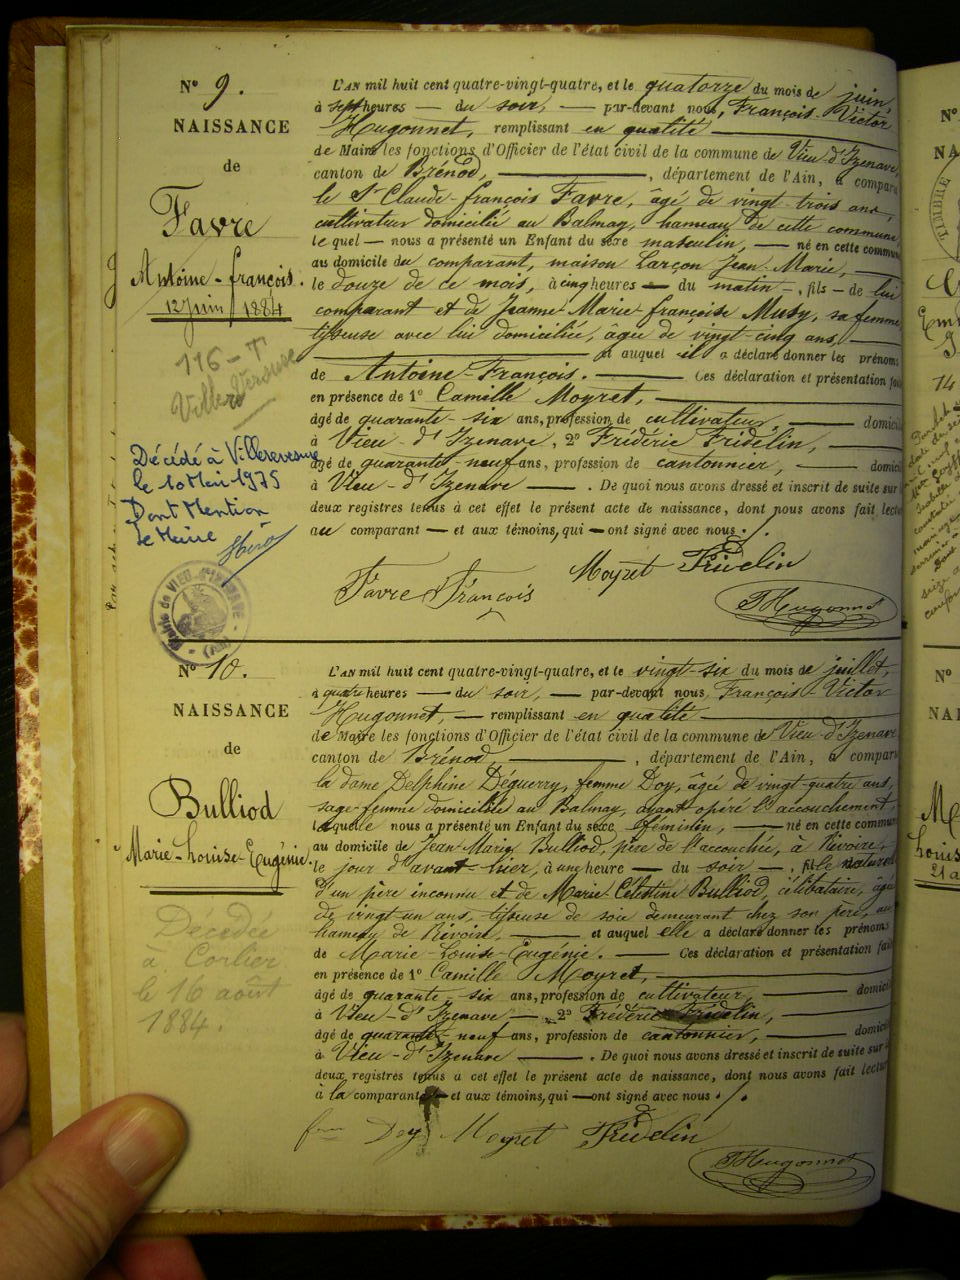 N° 9.
NAISSANCE
de
Favre
Antoine-françois.
12 Juin 1884
116 - T
Décédé à Villereversure
le 10 Mai 1975
Dont Mention
Le Maire
L'AN mil huit cent quatre-vingt-quatre, et le quatorze du mois de juin,
à sept heures — du soir, — par-devant nous, François-Victor
Hugonnet, remplissant en qualité
de Maire les fonctions d'Officier de l'état civil de la commune de Vieu-d'Izenave,
canton de Brénod, , département de l'Ain, a comparu
le Sr Claude-françois Favre, âgé de vingt-trois ans,
cultivateur domicilié au Balmay, hameau de cette commune,
le quel — nous a présenté un Enfant du sexe masculin, — né en cette commune
au domicile du comparant, maison Larçon Jean-Marie,
le douze de ce mois, à cinq heures — du matin —, fils — de lui
comparant et de Jeanne-Marie-françoise Musy, sa femme,
tisseuse avec lui domiciliée, âgée de vingt-cinq ans,
et auquel il a déclaré donner les prénoms
de Antoine-François. — Ces déclaration et présentation fai
en présence de 1° Camille Moyret,
âgé de quarante-six ans, profession de cultivateur, — domici
à Vieu-d'Izenave, 2° Frédéric Fridelin,
âgé de quarante-neuf ans, profession de cantonnier, — domici
à Vieu-d'Izenave — . De quoi nous avons dressé et inscrit de suite sur
deux registres tenus à cet effet le présent acte de naissance, dont nous avons fait lectu
au comparant — et aux témoins, qui — ont signé avec nous ./.
Favre François Moyret Fridelin
FHugonnet
N° 10.
NAISSANCE
de
Bulliod
Marie-Louise-Eugénie.
Décédée
à Corlier
le 16 août
1884.
L'AN mil huit cent quatre-vingt-quatre, et le vingt-six du mois de juillet,
à quatre heures — du soir, — par-devant nous, François-Victor
Hugonnet, — remplissant en qualité
de Maire les fonctions d'Officier de l'état civil de la commune de Vieu-d'Izenave
canton de Brénod, , département de l'Ain, a comparu
la dame Delphine Déguerry, femme Doy, âgée de vingt-quatre ans,
sage-femme domiciliée au Balmay, ayant opéré l'accouchement,
laquelle nous a présenté un Enfant du sexe féminin, — né en cette commun
au domicile de Jean-Marie Bulliod, père de l'accouchée, à Révoire,
le jour d'avant-hier, à une heure — du soir — , fille naturelle
d'un père inconnu et de Marie-Célestine Bulliod, célibataire, âgée
de vingt-un ans, tisseuse de soie demeurant chez son père, au
hameau de Révoire, — et auquel elle a déclaré donner les prénoms
de Marie-Louise-Eugénie. — Ces déclaration et présentation fai
en présence de 1° Camille Moyret,
âgé de quarante-six ans, profession de cultivateur, — domici
à Vieu-d'Izenave — 2° Frédéric Fridelin,
âgé de quarante-neuf ans, profession de cantonnier, — domici
à Vieu-d'Izenave — . De quoi nous avons dressé et inscrit de suite sur
deux registres tenus à cet effet le présent acte de naissance, dont nous avons fait lectu
à la comparant — et aux témoins, qui — ont signé avec nous ./.
fme Doy Moyret Fridelin
FHugonnet